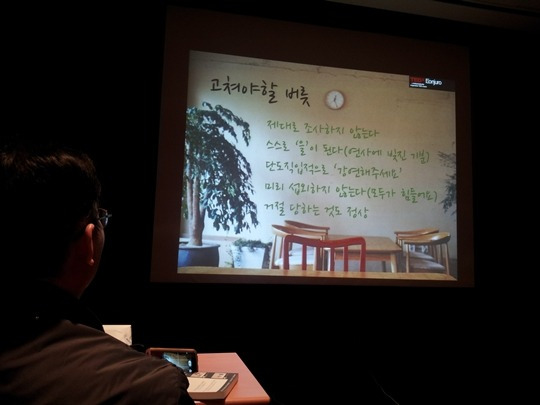 고쳐야할 버릇
제대로 조사하지 않는다
스스로 '을'이 된다(연사에 빚진 기분)
단도직입적으로 '강연해주세요'
미리 섭외하지 않는다(모두가 힘들어요)
거절 당하는 것도 정상